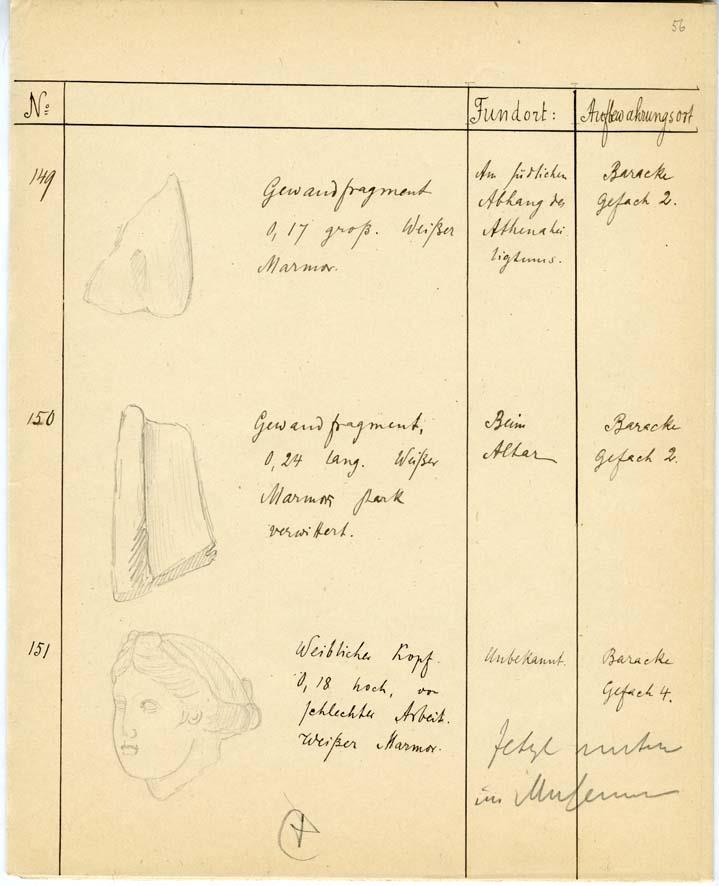 56
No: Fundort: Aufbewahrungsort
149
Gewandfragment
0,17 groß. Weißer
Marmor.
Am südlichen
Abhang des
Athenahei
ligtums.
Baracke
Gefach 2.
150
Gewandfragment,
0,24 lang. Weißer
Marmor stark
verwittert.
Beim
Altar
Baracke
Gefach 2.
151
Weiblicher Kopf.
0,18 hoch, von
schlechter Arbeit.
Weißer Marmor.
Unbekannt.
Baracke
Gefach 4.
Jetzt unten
im Museum